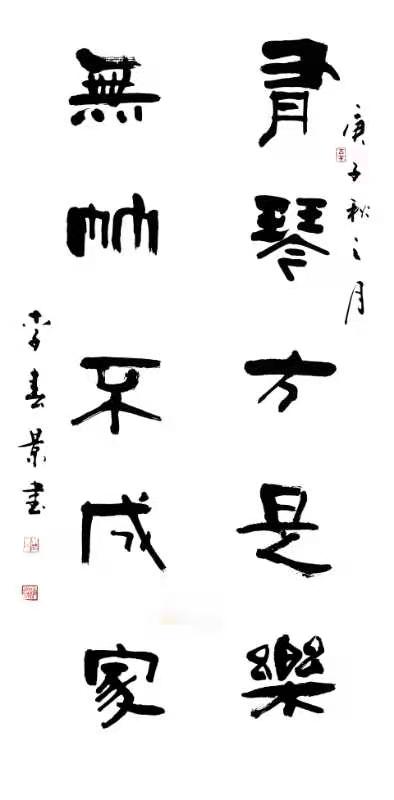 庚子秋之月
有琴方是樂
無竹不成家
李春景書